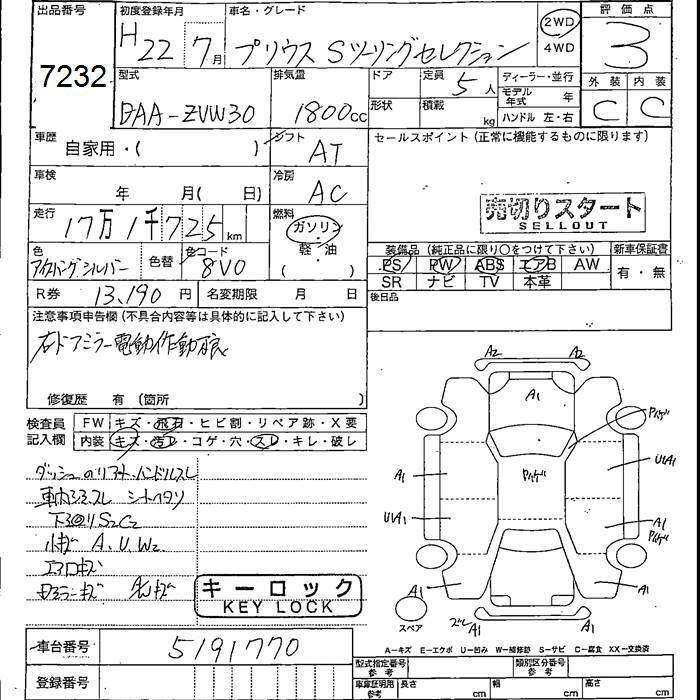 出品番号 初度登録年月 車名・グレード 評価点
7232 H 22 7月 プリウス Sツーリングセレクション 2WD 4WD 3
型式 排気量 ドア 定員 ディーラー・並行 外装 内装
DAA-ZVW30 1800cc 5人 モデル年式 年 C C
形状 積載 kg ハンドル 左・右
車歴 シフト セールスポイント (正常に機能するものに限ります)
自家用・( ) AT
車検 冷房
年 月( 日) AC
売切りスタート
SELLOUT
走行 燃料
17万1千725km ガソリン
軽・油
装備品 (純正品に限り○をつけて下さい) 新車保証書
色 色替 色コード
アイスバーグシルバー 8V0
PS PW ABS エアB AW 有・無
SR ナビ TV 本革
R券 13,190円 名変期限 月 日 後日品
注意事項申告欄 (不具合内容等は具体的に記入して下さい)
右ドアミラー電動作動
修復歴 有 (箇所 )
検査員 FW キズ・飛石・ヒビ割・リペア跡・X要
記入欄 内装 キズ・汚レ・コゲ・穴・スレ・キレ・破レ
ハンドルスレ
車内
下廻りS2C2
小キズ A.U.W2
エアロキズ
キーロック
KEY LOCK
A2 A2
A1
A1
U1A1
U1A1
A1
A1 A1
A1 A1
スペア
A-キズ E-エクボ U-凹み W-補修跡 S-サビ C-腐食 XX-交換済
車台番号 5191770
型式指定番号 参考 類別区分番号 参考
登録番号
車庫証明用 参考 長さ cm 幅 cm 高さ cm